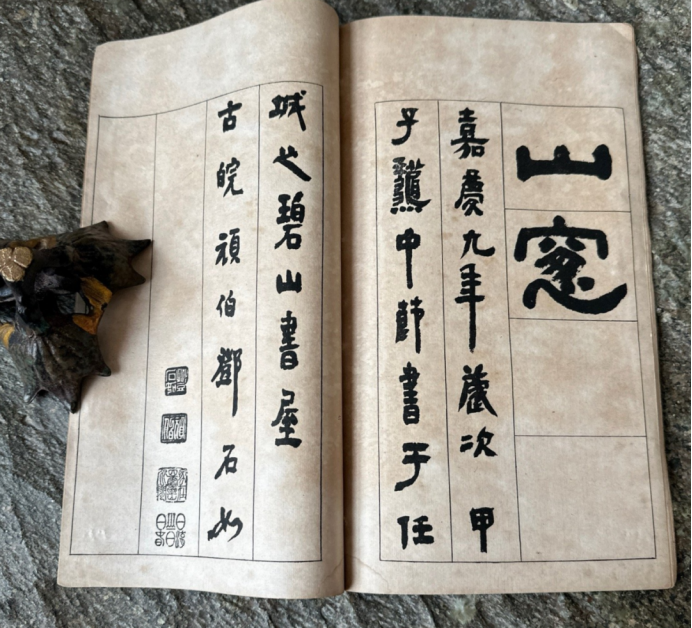 山窻
嘉慶九年歲次甲
子龝中節書于任
城之碧山書屋
古皖頑伯鄧石如